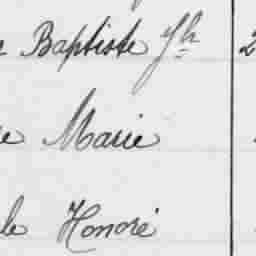 Baptiste Jh 2
Marie
le Honoré